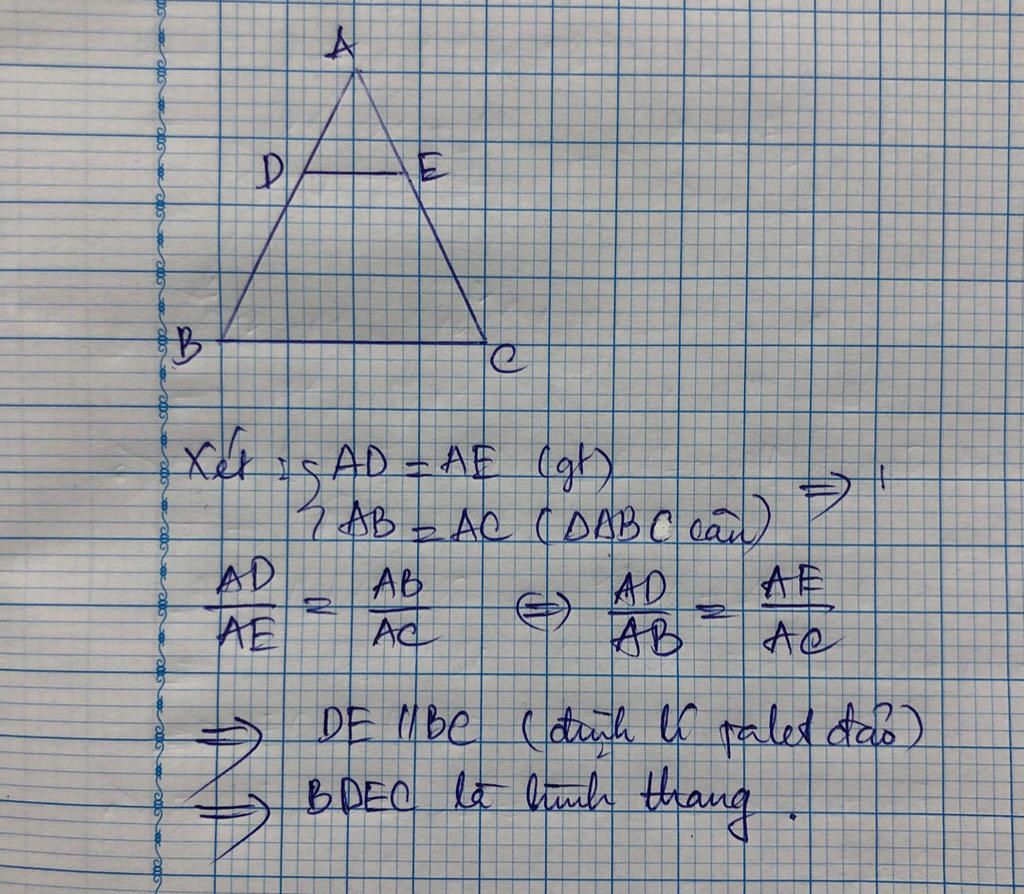 A
D E
B C
Xét : { AD = AE (gt)
AB = AC (ΔABC cân) ⇒
AD/AE = AB/AC ⇔ AD/AB = AE/AC
⇒ DE // BC (định lí talet đảo)
⇒ BDEC là hình thang.